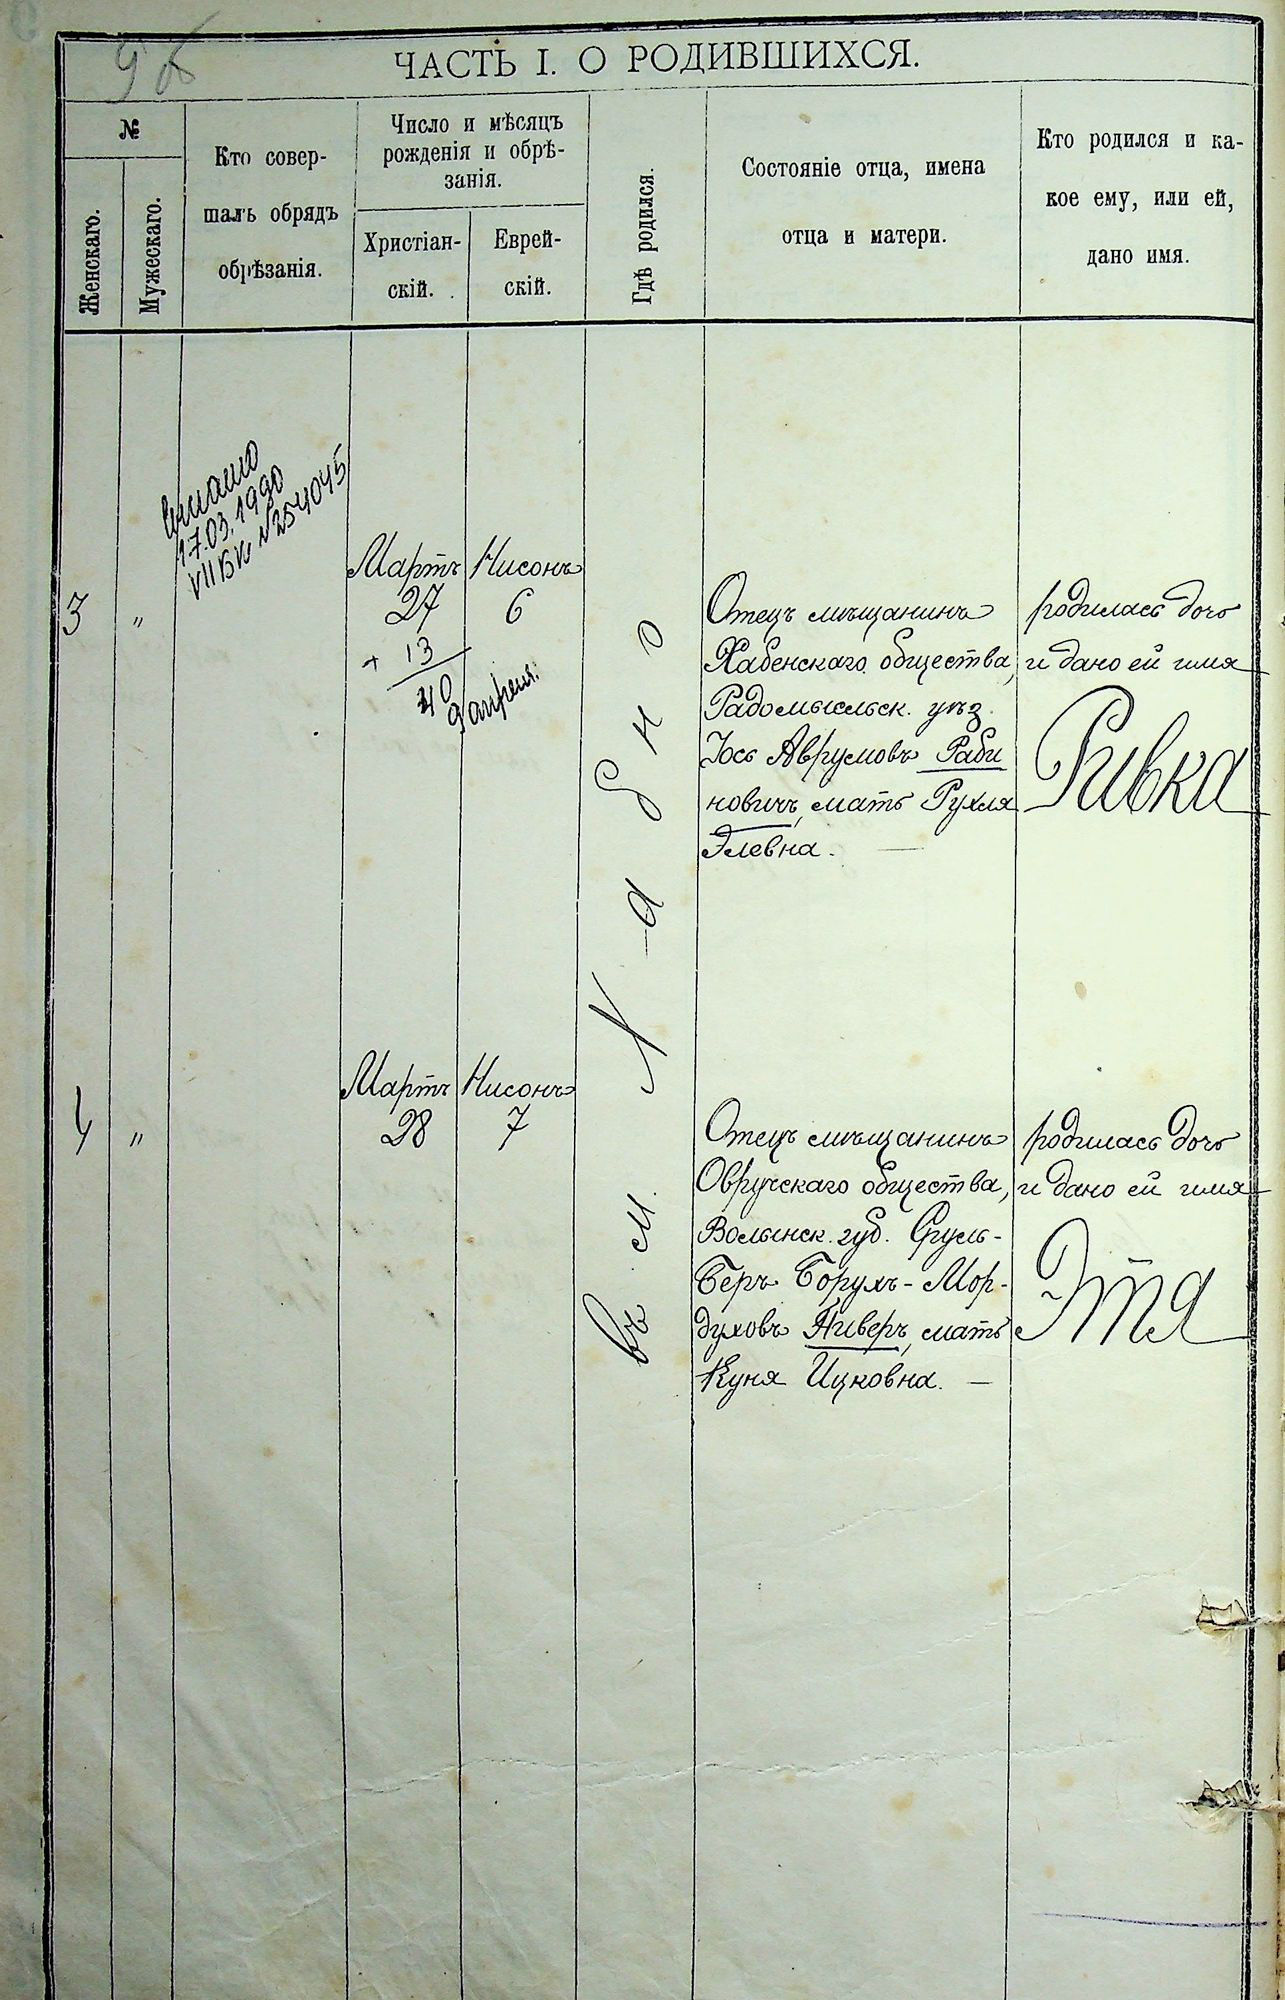 ЧАСТЬ I. О РОДИВШИХСЯ.
№
Женскаго.
Мужескаго.
Кто совер-
шалъ обрядъ
обрѣзанія.
Число и мѣсяцъ
рожденія и обрѣ-
занія.
Христіан-
скій.
Еврей-
скій.
Гдѣ родился.
Состояніе отца, имена
отца и матери.
Кто родился и ка-
кое ему, или ей,
дано имя.
17.03.1990
№254045
3
"
Мартъ
27
+ 13
40
9 апреля.
Нисонъ
6
въ м. Хабно
Отецъ мѣщанинъ
Хабенскаго общества,
Радомысльск. уѣз.
Іось Аврумовъ Раби
новичъ, мать Рухля
Элевна.
родилась дочь
и дано ей имя
Ривка
4
"
Мартъ
28
Нисонъ
7
Отецъ мѣщанинъ
Овручскаго общества,
Волынск. губ. Сруль-
Беръ Борухъ-Мор-
духовъ Ниверъ, мать
Куня Ицковна. —
родилась дочь
и дано ей имя
Этя